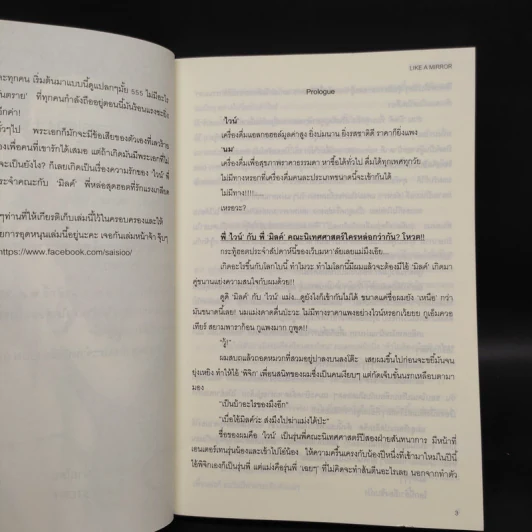 ะทุกคน เริ่มต้นมาแบบนี้ดูแปลกๆมั้ย 555 ไม่มีอะไร
ันตราย' ที่ทุกคนกำลังถืออยู่ตอนนี้มันร้อนแรงซะยิ่ง
ีกค่า!
ั่วๆไป พระเอกก็มักจะมีข้อเสียของตัวเองที่
องเพื่อคนที่เขารักได้เสมอ แต่ถ้าเกิดมันมีพระเอกที่ไม่
จะเป็นยังไง? ก็เลยเกิดเป็นเรื่องความรักของ 'ไวน์' พี่
ระจำคณะกับ 'มิลค์' พี่หล่อสุดฮอตที่รักแรงเกลียด
ๆท่านที่ให้เกียรติเก็บเล่มนี้ไว้ในครอบครองและให้
ยการอุดหนุนเล่มนี้อยู่นะคะ เจอกันเล่มหน้าจ้า จุ๊บๆ
https://www.facebook.com/saisioo/
LIKE A MIRROR
Prologue
'ไวน์'
เครื่องดื่มแอลกอฮอล์มูลค่าสูง ยิ่งบ่มนาน ยิ่งรสชาติดี ราคาก็ยิ่งแพง
'นม'
เครื่องดื่มเพื่อสุขภาพราคาธรรมดา หาซื้อได้ทั่วไป ดื่มได้ทุกเพศทุกวัย
ไม่มีทางหรอกที่เครื่องดื่มคนละประเภทขนาดนี้จะเข้ากันได้
ไม่มีทาง!!!!
เหรอวะ?
พี่ 'ไวน์' กับ พี่ 'มิลค์' คณะนิเทศศาสตร์ใครหล่อกว่ากัน? โหวต!!
กระทู้ฮอตประจำสัปดาห์นี้ของเว็บมหา'ลัยเลยแม่มึงเอ๊ย...
เกิดอะไรขึ้นกับโลกใบนี้ ทำไมวะ ทำไมโลกนี้มีผมแล้วจะต้องมีไอ้ 'มิลค์' เกิดมา
คู่ขนานแย่งความสนใจกับผมด้วย!!
ดูดิ 'มิลค์' กับ 'ไวน์' แม่ง...ดูยังไงก็เข้ากันไม่ได้ ขนาดแค่ชื่อผมยัง 'เหนือ' กว่า
มันขนาดนี้เลย! นมแม่งดาดดื่นปะวะ ไม่มีทางราคาแพงอย่างไวน์หรอกเว้ยยย กูเอ็มควอ
เทียร์ สยามพาราก้อน กูแพงมาก กูพูด!!
"ผู้!"
ผมสบถแล้วถอดหมวกที่สวมอยู่ปาลงบนลงโต๊ะ เสยผมขึ้นไปก่อนจะขยี้มันจน
ยุ่งเหยิง ทำให้ไอ้ 'พิจิก' เพื่อนสนิทของผมซึ่งเป็นคนเงียบๆ แต่กัดเจ็บชั้นนรกเหลือบตามา
มอง
"เป็นบ้าอะไรของมึงอีก"
"เบื่อไอ้มิลค์ว่ะ ส่งมึงไปฆ่าแม่งได้ปะ"
ชื่อของผมคือ 'ไวน์' เป็นรุ่นพี่คณะนิเทศศาสตร์ปีสองฝ่ายสันทนาการ มีหน้าที่
เอนเตอร์เทนรุ่นน้องและเข้าไปโอ๋น้อง ให้ความครื้นเครงกับน้องปีหนึ่งที่เข้ามาใหม่ในปีนี้
ไอ้พิจิกเองก็เป็นรุ่นพี่ แต่แม่งคือรุ่นพี่ 'เฉยๆ' ที่ไม่คิดจะทำสันดีนอะไรเลย นอกจากทำตัว
3